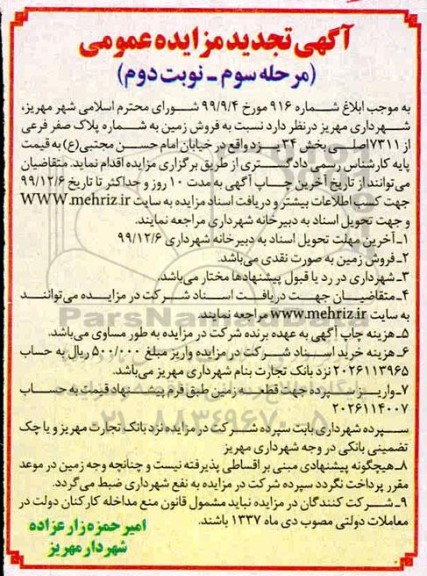 آگهی تجدید مزایده عمومی
(مرحله سوم ـ نوبت دوم)
به موجب ابلاغ شماره ۹۱۶ مورخ ۹۹/۹/۴ شورای محترم اسلامی شهر مهریز،
شهرداری مهریز درنظر دارد نسبت به فروش زمین به شماره پلاک صفر فرعی
از ۷۳۱۱اصلی بخش ۳۴ یزد واقع در خیابان امام حسن مجتبی(ع) به قیمت
پایه کارشناس رسمی دادگستری از طریق برگزاری مزایده اقدام نماید. متقاضیان
می‌توانند از تاریخ آخرین چاپ آگهی به مدت ۱۰ روز و حداکثر تا تاریخ ۹۹/۱۲/۶
جهت کسب اطلاعات بیشتر و دریافت اسناد مزایده به سایت WWW.mehriz.ir
و جهت تحویل اسناد به دبیرخانه شهرداری مراجعه نمایند.
۱ـ آخرین مهلت تحویل اسناد به دبیرخانه شهرداری ۹۹/۱۲/۶
۲ـ فروش زمین به صورت نقدی می‌باشد.
۳ـ شهرداری در رد یا قبول پیشنهادها مختار می‌باشد.
۴ـ متقاضیان جهت دریافت اسناد شرکت در مزایده می‌توانند
به سایت www.mehriz.ir مراجعه نمایند.
۵ـ هزینه چاپ آگهی به عهده برنده شرکت در مزایده به طور مساوی می‌باشد.
۶ـ هزینه خرید اسناد شرکت در مزایده واریز مبلغ ۵۰۰/۰۰۰ ریال به حساب
۲۰۲۶۱۱۳۹۶۵ نزد بانک تجارت بنام شهرداری مهریز می‌باشد.
۷ـ واریز سپرده جهت قطعه زمین طبق فرم پیشنهاد قیمت به حساب
۲۰۲۶۱۱۴۰۰۷
سپرده شهرداری بابت سپرده شرکت در مزایده نزد بانک تجارت مهریز و یا چک
تضمینی بانکی در وجه شهرداری مهریز
۸ـ هیچگونه پیشنهادی مبنی بر اقساطی پذیرفته نیست و چنانچه وجه زمین در موعد
مقرر پرداخت نگردد سپرده شرکت در مزایده به نفع شهرداری ضبط می‌گردد.
۹ـ شرکت کنندگان در مزایده نباید مشمول قانون منع مداخله کارکنان دولت در
معاملات دولتی مصوب دی ماه ۱۳۳۷ باشند.
امیرحمزه زارعزاده
شهردار مهریز